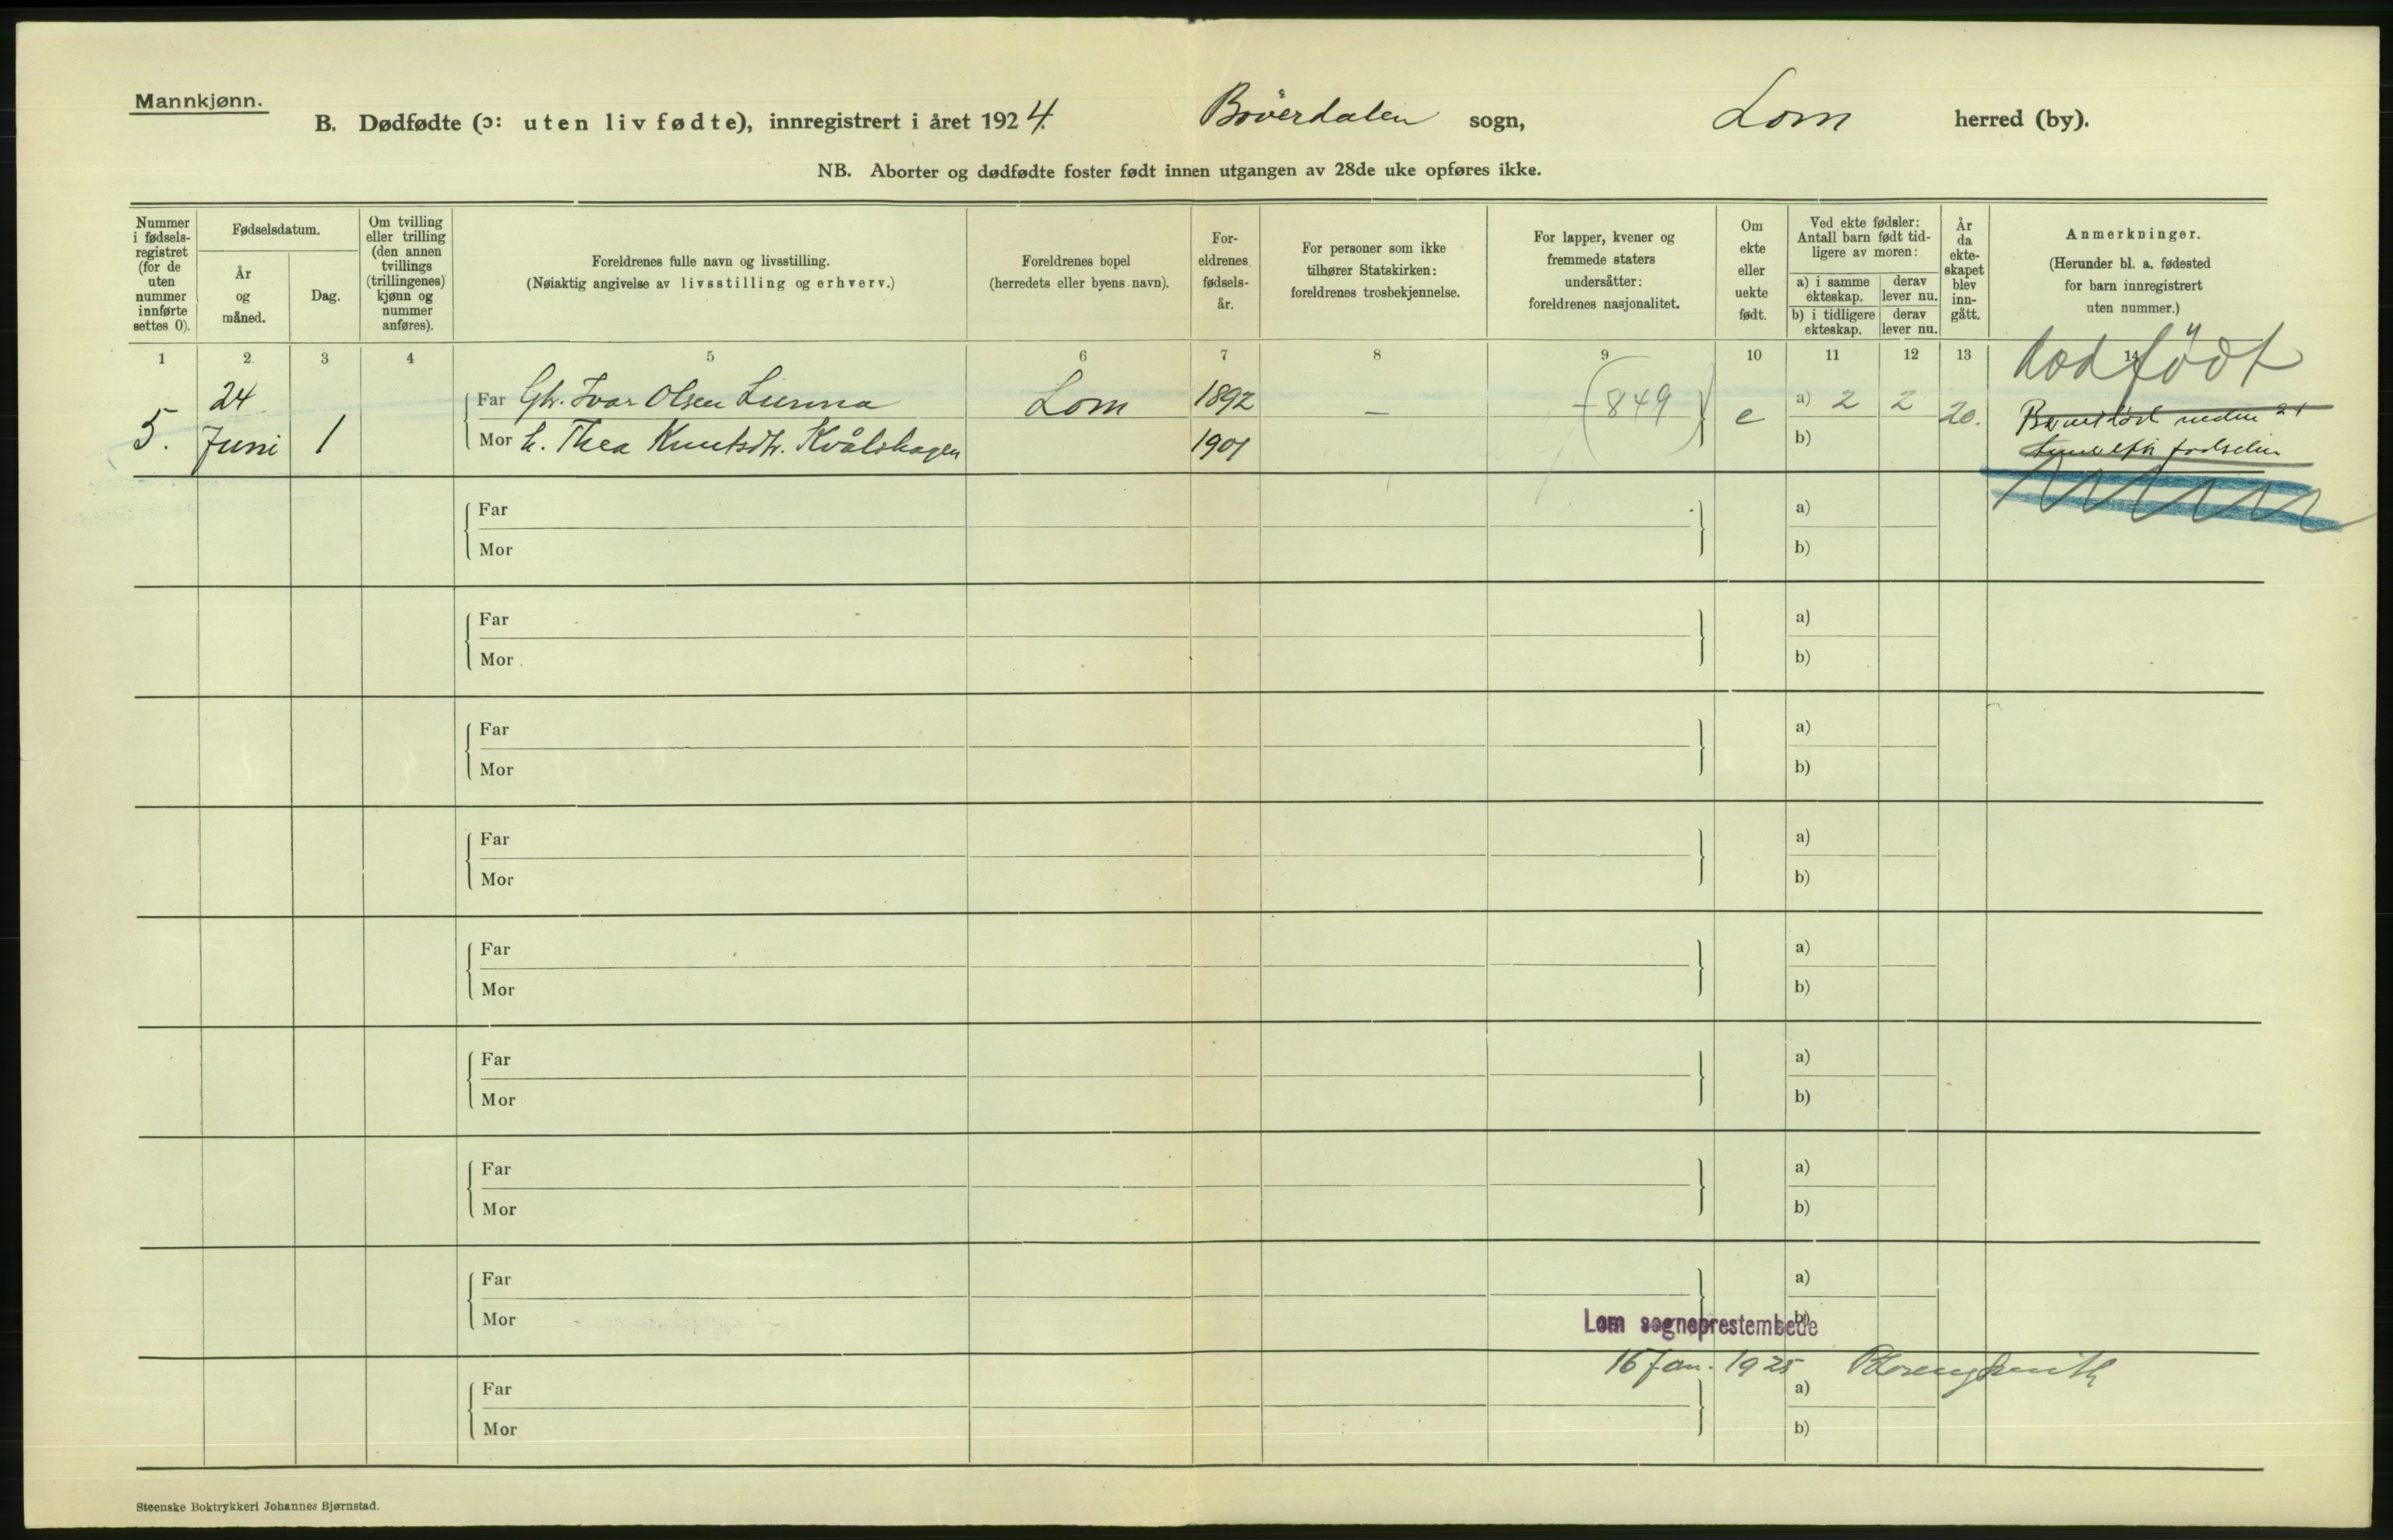 Mannkjønn.
B. Dødfødte (ɔ: uten liv fødte), innregistrert i året 1924. Bøverdalen sogn, Lom herred (by).
NB. Aborter og dødfødte foster født innen utgangen av 28de uke opføres ikke.
Nummer i fødsels-registret (for de uten nummer innførte settes 0).
Fødselsdatum.
År og måned.
Dag.
Om tvilling eller trilling (den annen tvillings (trillingenes) kjønn og nummer anføres).
Foreldrenes fulle navn og livsstilling.
(Nøiaktig angivelse av livsstilling og erhverv.)
Foreldrenes bopel
(herredets eller byens navn).
For-eldrenes fødsels-år.
For personer som ikke tilhører Statskirken: foreldrenes trosbekjennelse.
For lapper, kvener og fremmede staters undersåtter: foreldrenes nasjonalitet.
Om ekte eller uekte født.
Ved ekte fødsler: Antall barn født tid-ligere av moren:
a) i samme ekteskap.
derav lever nu.
b) i tidligere ekteskap.
derav lever nu.
År da ekte-skapet blev inn-gått.
Anmerkninger.
(Herunder bl. a. fødested for barn innregistrert uten nummer.)
1 2 3 4 5 6 7 8 9 10 11 12 13 14
dødfødt
5. 24 Juni 1
Far Gbr. Ivar Olsen Lienna Lom 1892 — (849) e a) 2 2 20.
Mor h. Thea Knutsdtr. Kvålshagen 1901 b)
fødselen
Far a)
Mor b)
Far a)
Mor b)
Far a)
Mor b)
Far a)
Mor b)
Far a)
Mor b)
Far a)
Mor b)
Far a)
Mor b)
Far a)
Mor b)
Lom sogneprestembede
16 Jan. 1925
Far a)
Mor b)
Steenske Boktrykkeri Johannes Bjørnstad.